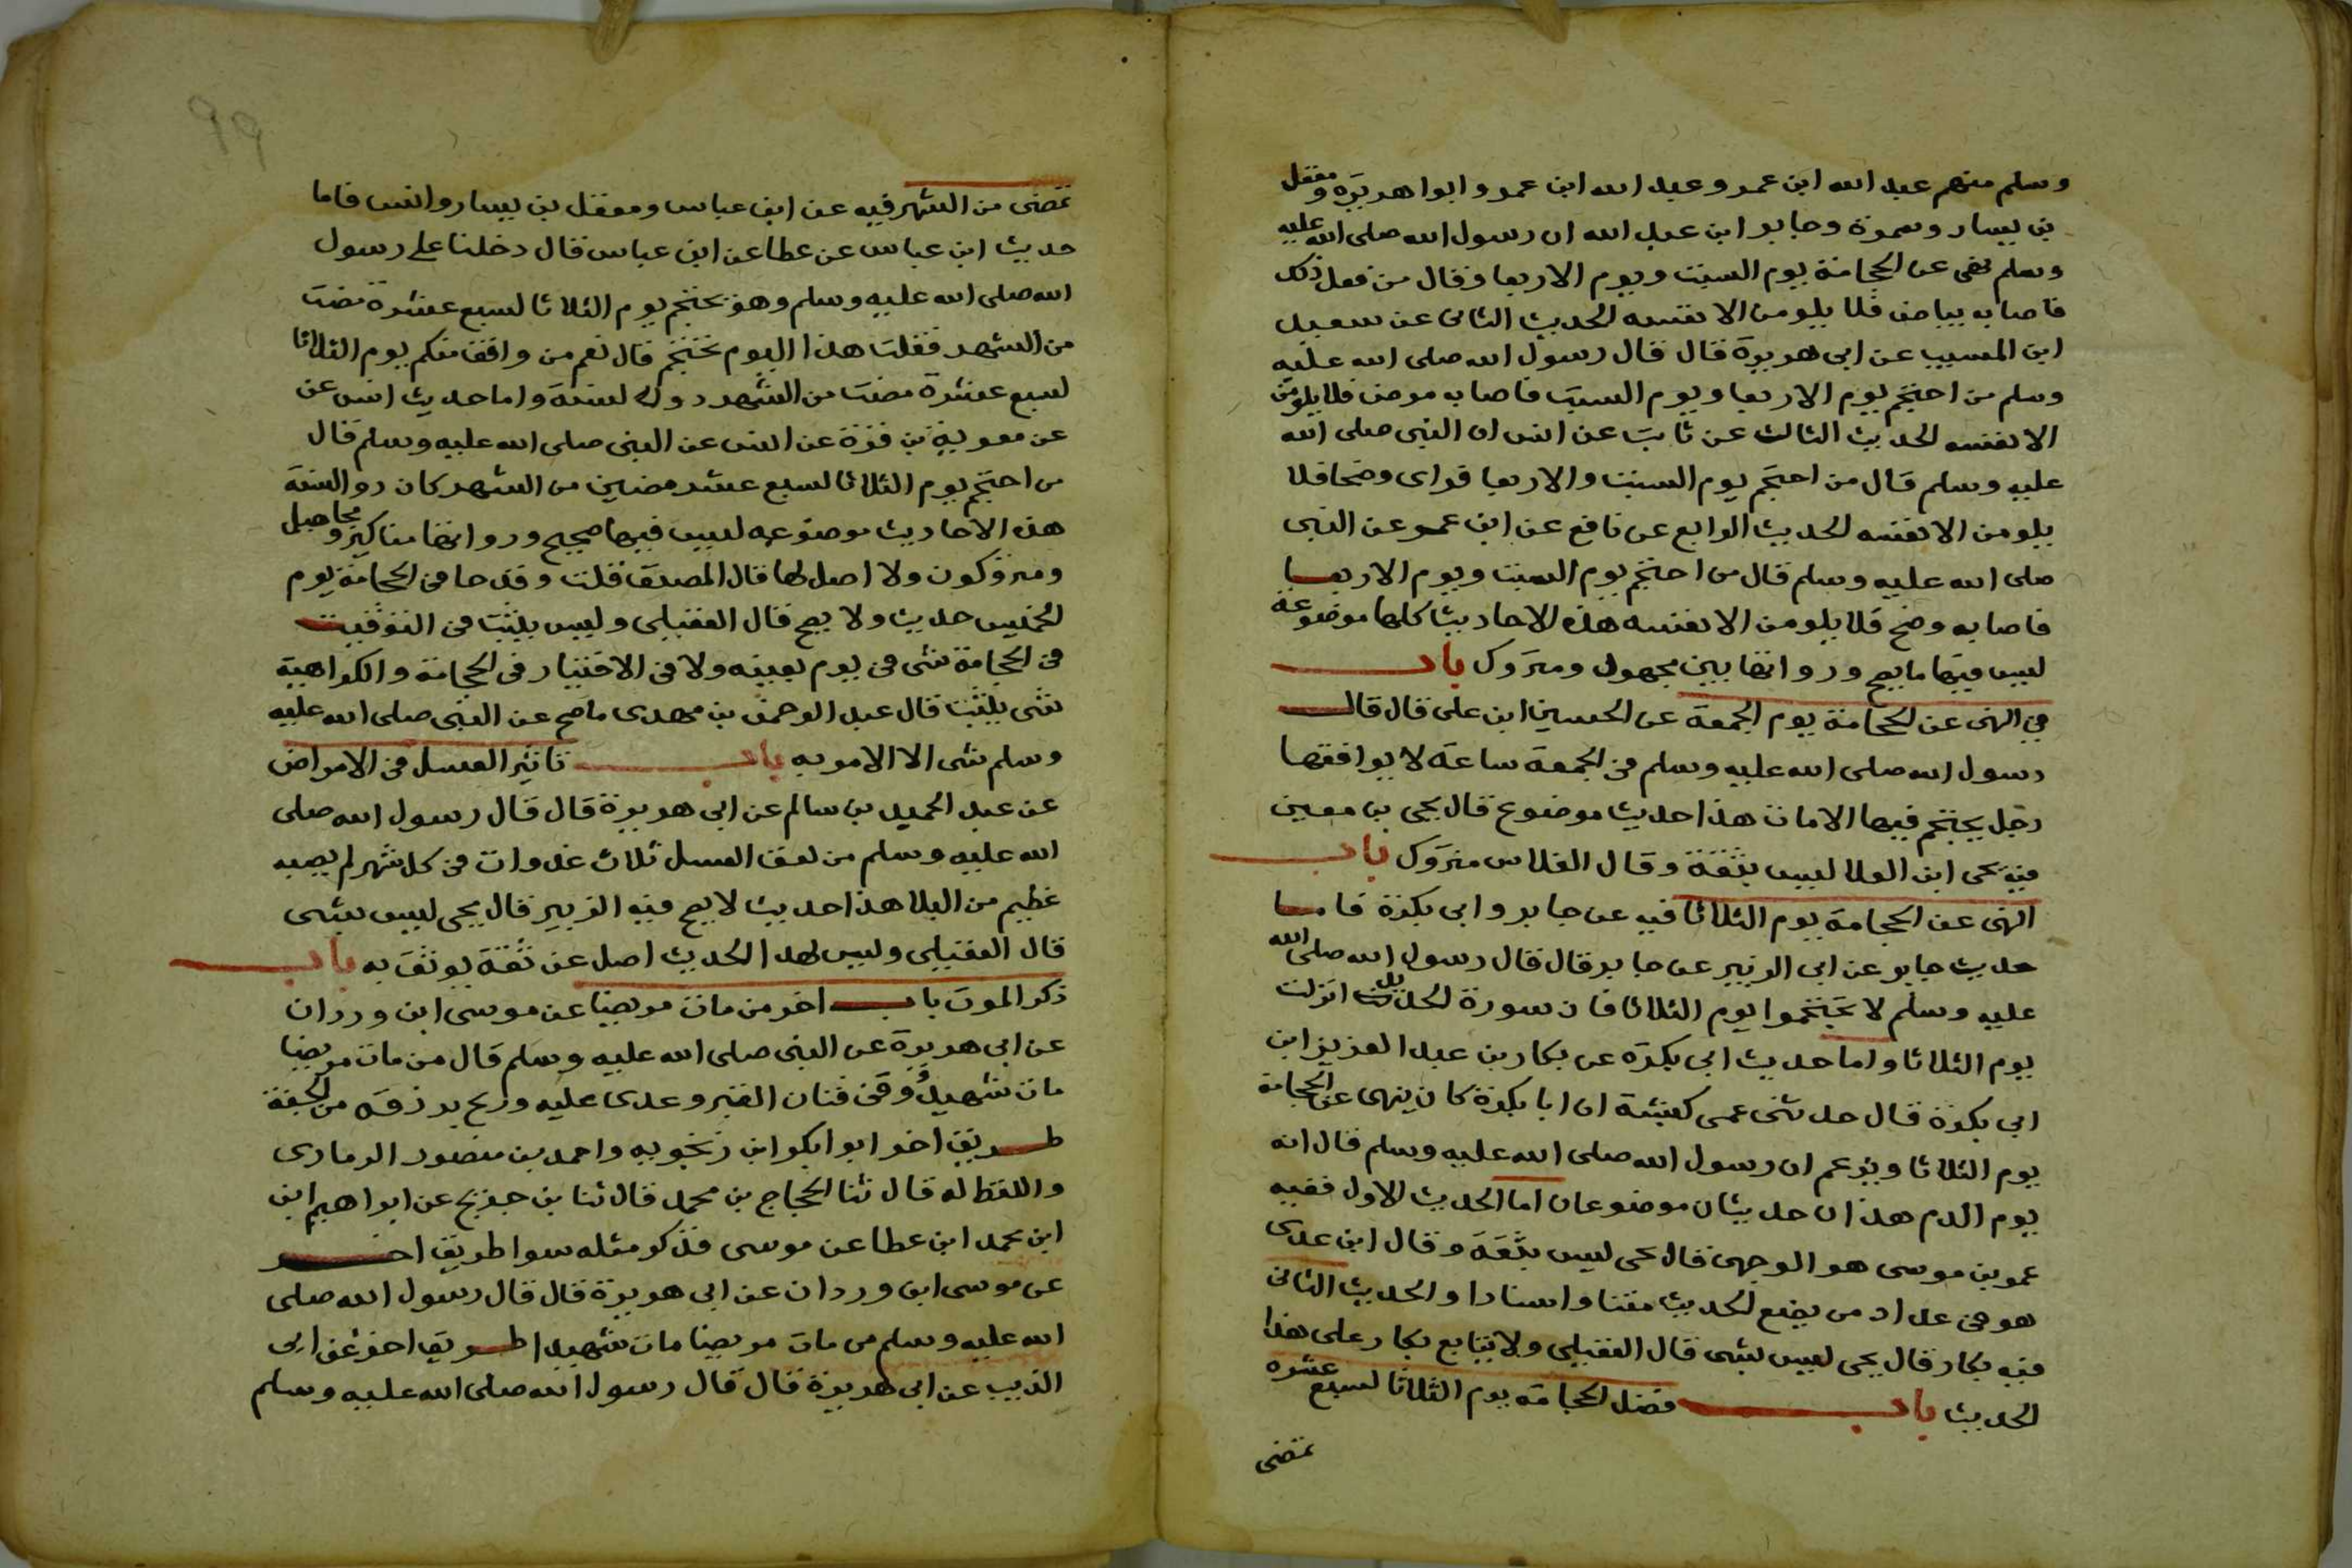 وسلم منهم عبد الله ابن عمر وعبد الله ابن عمرو ابوا هريرة ومعقل
بن يسار وسمرة وجابر ابن عبد الله ان رسول الله صلى الله عليه
وسلم نهى عن الحجامة يوم السبت ويوم الاربعا وقال من فعل ذلك
فاصابه بياض فلا يلومن الا نفسه الحديث الثانى عن سعيد
ابن المسيب عن ابى هريرة قال قال رسول الله صلى الله عليه
وسلم من احتجم يوم الاربعا ويوم السبت فاصابه مرض فلا يلومن
الا نفسه الحديث الثالث عن ثابت عن انس ان النبى صلى الله
عليه وسلم قال من احتجم يوم السبت والاربعا فراى وضحا فلا
يلومن الا نفسه الحديث الرابع عن نافع عن ابن عمر عن النبى
صلى الله عليه وسلم قال من احتجم يوم السبت ويوم الاربعا
فاصابه وضح فلا يلومن الا نفسه هذه الاحاديث كلها موضوعة
ليس فيها ما يصح ورواتها بين مجهول ومتروك باب
في النهى عن الحجامة يوم الجمعة عن الحسين ابن على قال قال
رسول الله صلى الله عليه وسلم فى الجمعة ساعة لا يوافقها
رجل يحتجم فيها الا مات هذا حديث موضوع قال يحيى بن معين
فيه يحى ابن العلا ليس بثقة وقال الفلاس متروك باب
النهى عن الحجامة يوم الثلاثا فيه عن جابر وابى بكرة فاما
حديث جابر عن ابى الزبير عن جابر قال قال رسول الله صلى الله
عليه وسلم لا تحتجموا يوم الثلاثا فان سورة الحديد انزلت
يوم الثلاثا واما حديث ابى بكرة عن بكار بن عبد العزيز ابن
ابى بكرة قال حدثنى عمى كبشة ان ابا بكرة كان ينهى عن الحجامة
يوم الثلاثا ويزعم ان رسول الله صلى الله عليه وسلم قال انه
يوم الدم هذان حديثان موضوعان اما الحديث الاول ففيه
عمر بن موسى هو الوجهى قال يحى ليس بثقة وقال ابن عدى
هو فى عداد من يضع الحديث متنا واسنادا والحديث الثانى
فيه بكار قال يحى ليس بشى قال العقيلى ولا يتابع بكار على هذا
الحديث باب فضل الحجامة يوم الثلاثا لسبع عشره
تمضى
99
تمضى من الشهر فيه عن ابن عباس ومعقل بن يسار وانس فاما
حديث ابن عباس عن عطا عن ابن عباس قال دخلنا على رسول
الله صلى الله عليه وسلم وهو يحتجم يوم الثلاثا لسبع عشرة مضت
من الشهر فقلت هذا اليوم تحتجم قال نعم من وافق منكم يوم الثلاثا
لسبع عشرة مضت من الشهر دواء لسنة واما حديث انس عن
عن معوية بن قرة عن انس عن النبى صلى الله عليه وسلم قال
من احتجم يوم الثلاثا لسبع عشر مضين من الشهر كان دوا السنة
هذه الاحاديث موضوعه ليس فيها صحيح ورواتها مناكير ومجاهيل
ومتروكون ولا اصل لها قال المصنف قلت وقد جا فى الحجامة يوم
الخميس حديث ولا يصح قال العقيلى وليس يثبت فى التوقيت
فى الحجامة شى فى يوم بعينه ولا فى الاختيار فى الحجامة والكراهية
شى يثبت قال عبد الرحمن بن مهدى ما صح عن النبى صلى الله عليه
وسلم شى الا الامر به باب تاثير العسل فى الامراض
عن عبد الحميد بن سالم عن ابى هريرة قال قال رسول الله صلى
الله عليه وسلم من لعق العسل ثلاث غدوات فى كل شهر لم يصبه
عظيم من البلا هذا حديث لا يصح فيه الزبير قال يحى ليس بشى
قال العقيلى وليس لهذا الحديث اصل عن ثقة يوثق به باب
ذكر الموت باب اخر من مات مريضا عن موسى ابن وردان
عن ابى هريرة عن النبى صلى الله عليه وسلم قال من مات مريضا
مات شهيدٌ ووقى فتان القبر وعدى عليه وريح برزقه من الجنة
طريق اخر ابوا بكر ابن زنجويه واحمد بن منصور الرمادى
واللفظ له قال ثنا الحجاج بن محمد قال ثنا بن جريج عن ابراهيم ابن
ابن محمد ابن عطا عن موسى فذكر مثله سوا طريق اخر
عن موسى ابن وردان عن ابى هريرة قال قال رسول الله صلى
الله عليه وسلم من مات مريضا مات شهيدا طريق اخر عن ابى
الذيب عن ابى هريرة قال قال رسول الله صلى الله عليه وسلم